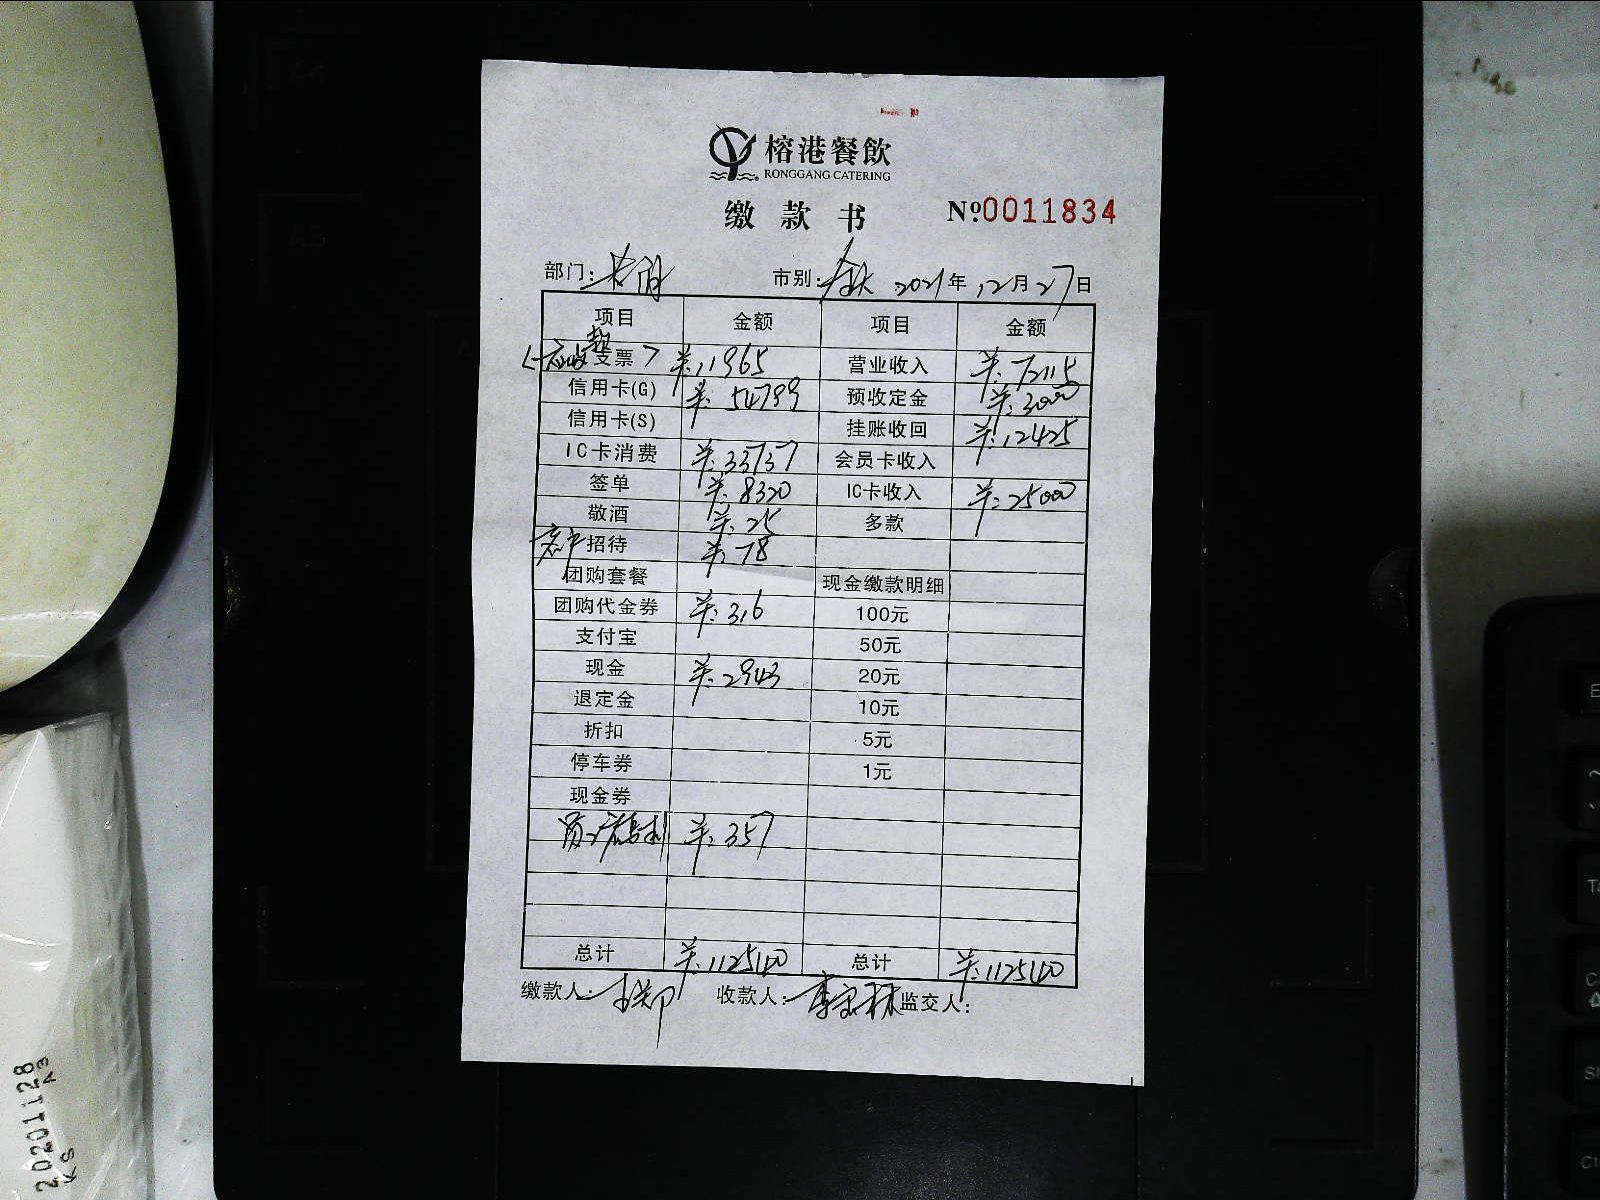 榕港餐飲
RONGGANG CATERING
缴款书 №0011834
部门: 市别: 全天 2021年12月27日
项目 金额 项目 金额
<应收款支票> ¥:11965 营业收入 ¥:72115
信用卡(G) ¥:54799 预收定金 ¥:3000
信用卡(S) 挂账收回 ¥:12425
IC卡消费 ¥:33737 会员卡收入
签单 ¥:8320 IC卡收入 ¥:25000
敬酒 ¥:25 多款
客户招待 ¥:78
团购套餐 现金缴款明细
团购代金券 ¥:316 100元
支付宝 50元
现金 ¥:2943 20元
退定金 10元
折扣 5元
停车券 1元
现金券
¥:357
总计 ¥:112540 总计 ¥:112540
缴款人: 收款人: 监交人:
20201128
A3
KS